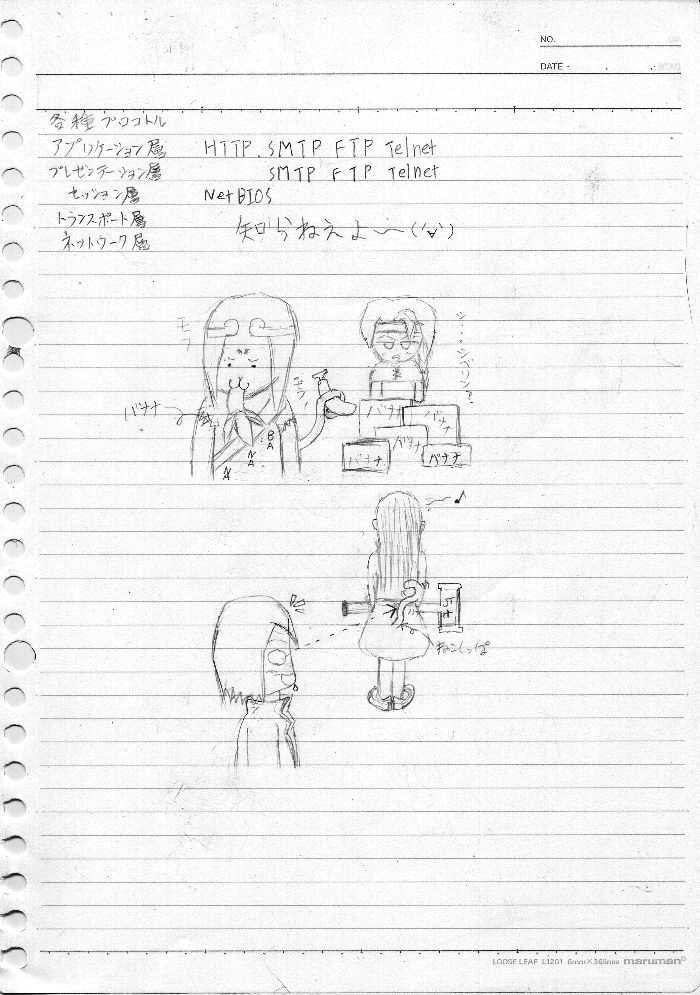 NO.
DATE
各種プロコトル
アプリケーション層 HTTP. SMTP FTP Telnet
プレゼンテーション層 SMTP FTP Telnet
セッション層 NetBIOS
トランスポート層
知らねえよ〜('∀')
ネットワーク層
モフ
モフ
バナナ
BA
NA
NA
バナナ
バナナ
バナナ
バナナ
バナナ
♪
ねこしっぽ
LOOSE LEAF L1201 6mm×36lines maruman